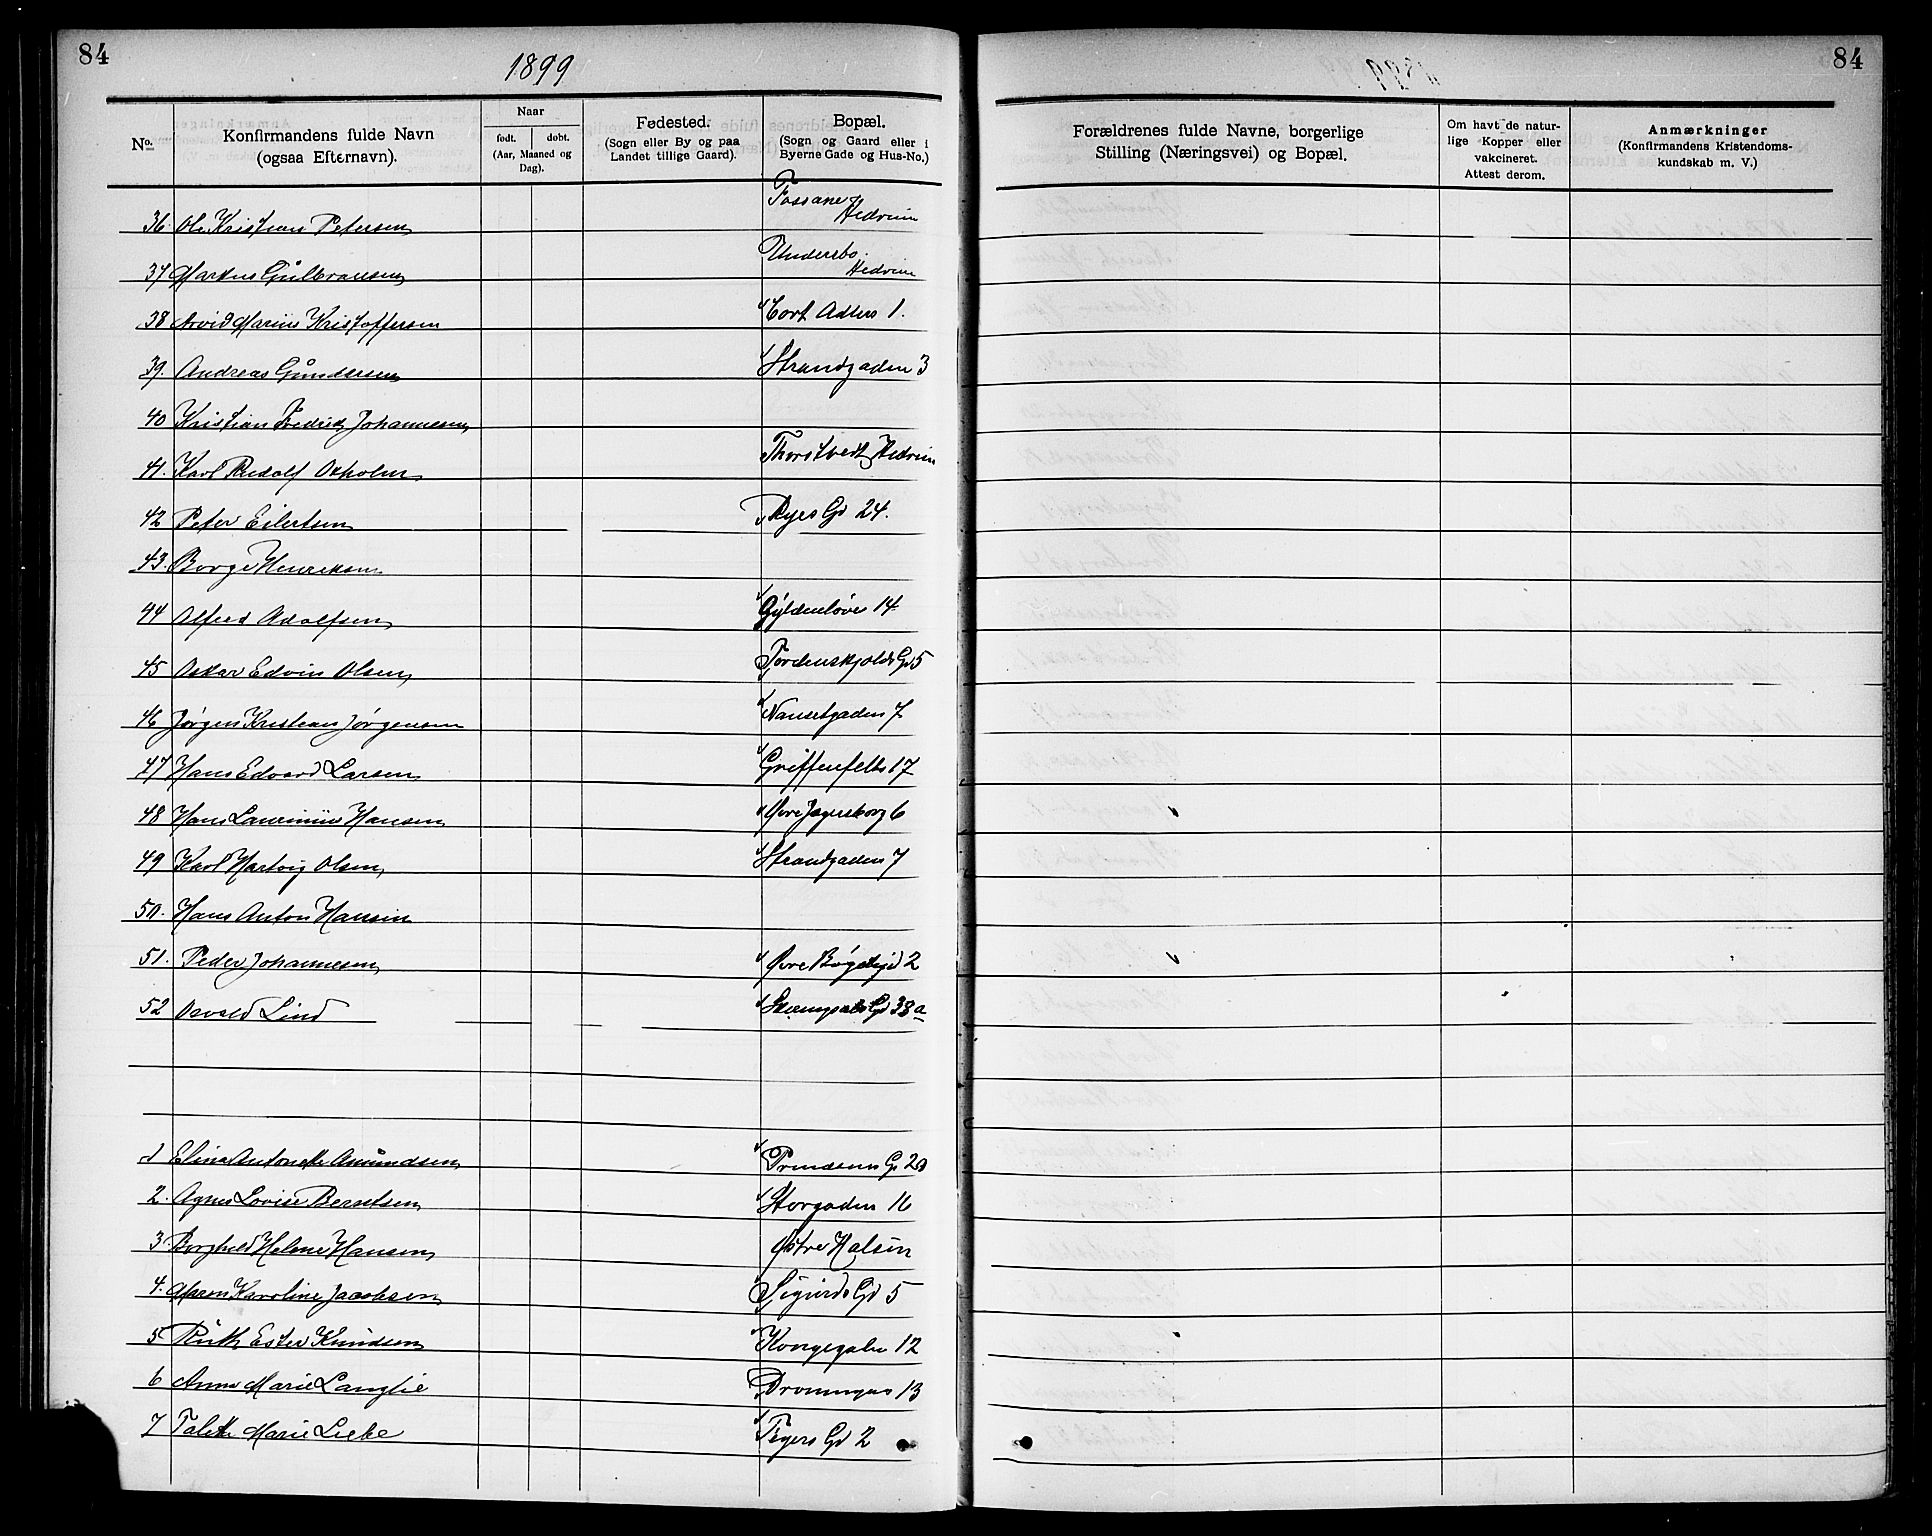 84
1899
No.
Konfirmandens fulde Navn
(ogsaa Efternavn).
Naar
født. døbt.
(Aar, Maaned og
Dag).
Fødested.
(Sogn eller By og paa
Landet tillige Gaard).
Bopæl.
(Sogn og Gaard eller i
Byerne Gade og Hus-No.)
36. Ole Kristian Petersen Fossane Hedrum
37 Markus Gulbransen Undersbo Hedrum
38 Arvid Marius Kristoffersen Cort Adlers 1.
39. Andreas Gundersen Strandgaden 3
40 Kristian Fredrik Johannesen
41. Karl Rudolf Oxholm Thorstvedt Hedrum
42 Peter Eilertsen Ryes Gd 24.
43. Borge Henriksen
44 Alfred Adolfsen Gyldenløves 14
45 Oskar Edvin Olsen Tordenskjolds Gd 5
46 Jørgen Kristian Jørgensen Nansetgaden 7
47 Hans Edvard Larsen Griffenfelts 17
48 Hans Laurinius Hansen Øvre Jegersborg 6
49 Karl Hartvig Olsen Strandgaden 7
50. Hans Anton Hansen
51. Peder Johannesen Øvre Bøgeligd 2
52 Osvald Lind Gd 38a
1 Elina Antonette Amundsen Gd 20
2. Agnes Lovise Berntsen Storgaden 16
3. Borghild Helene Hansen Østre Halsen
4. Maren Karoline Jacobsen Sigurds Gd 5
5 Ruth Ester Knudsen Kongegaden 12
6 Anna Marie Langlie Droningens 13
7 Talette Marie Liebe Tegers Gd 2
84
Forældrenes fulde Navne, borgerlige
Stilling (Næringsvei) og Bopæl.
Om havt de natur-
lige Kopper eller
vakcineret.
Attest derom.
Anmærkninger
(Konfirmandens Kristendoms-
kundskab m. V.)